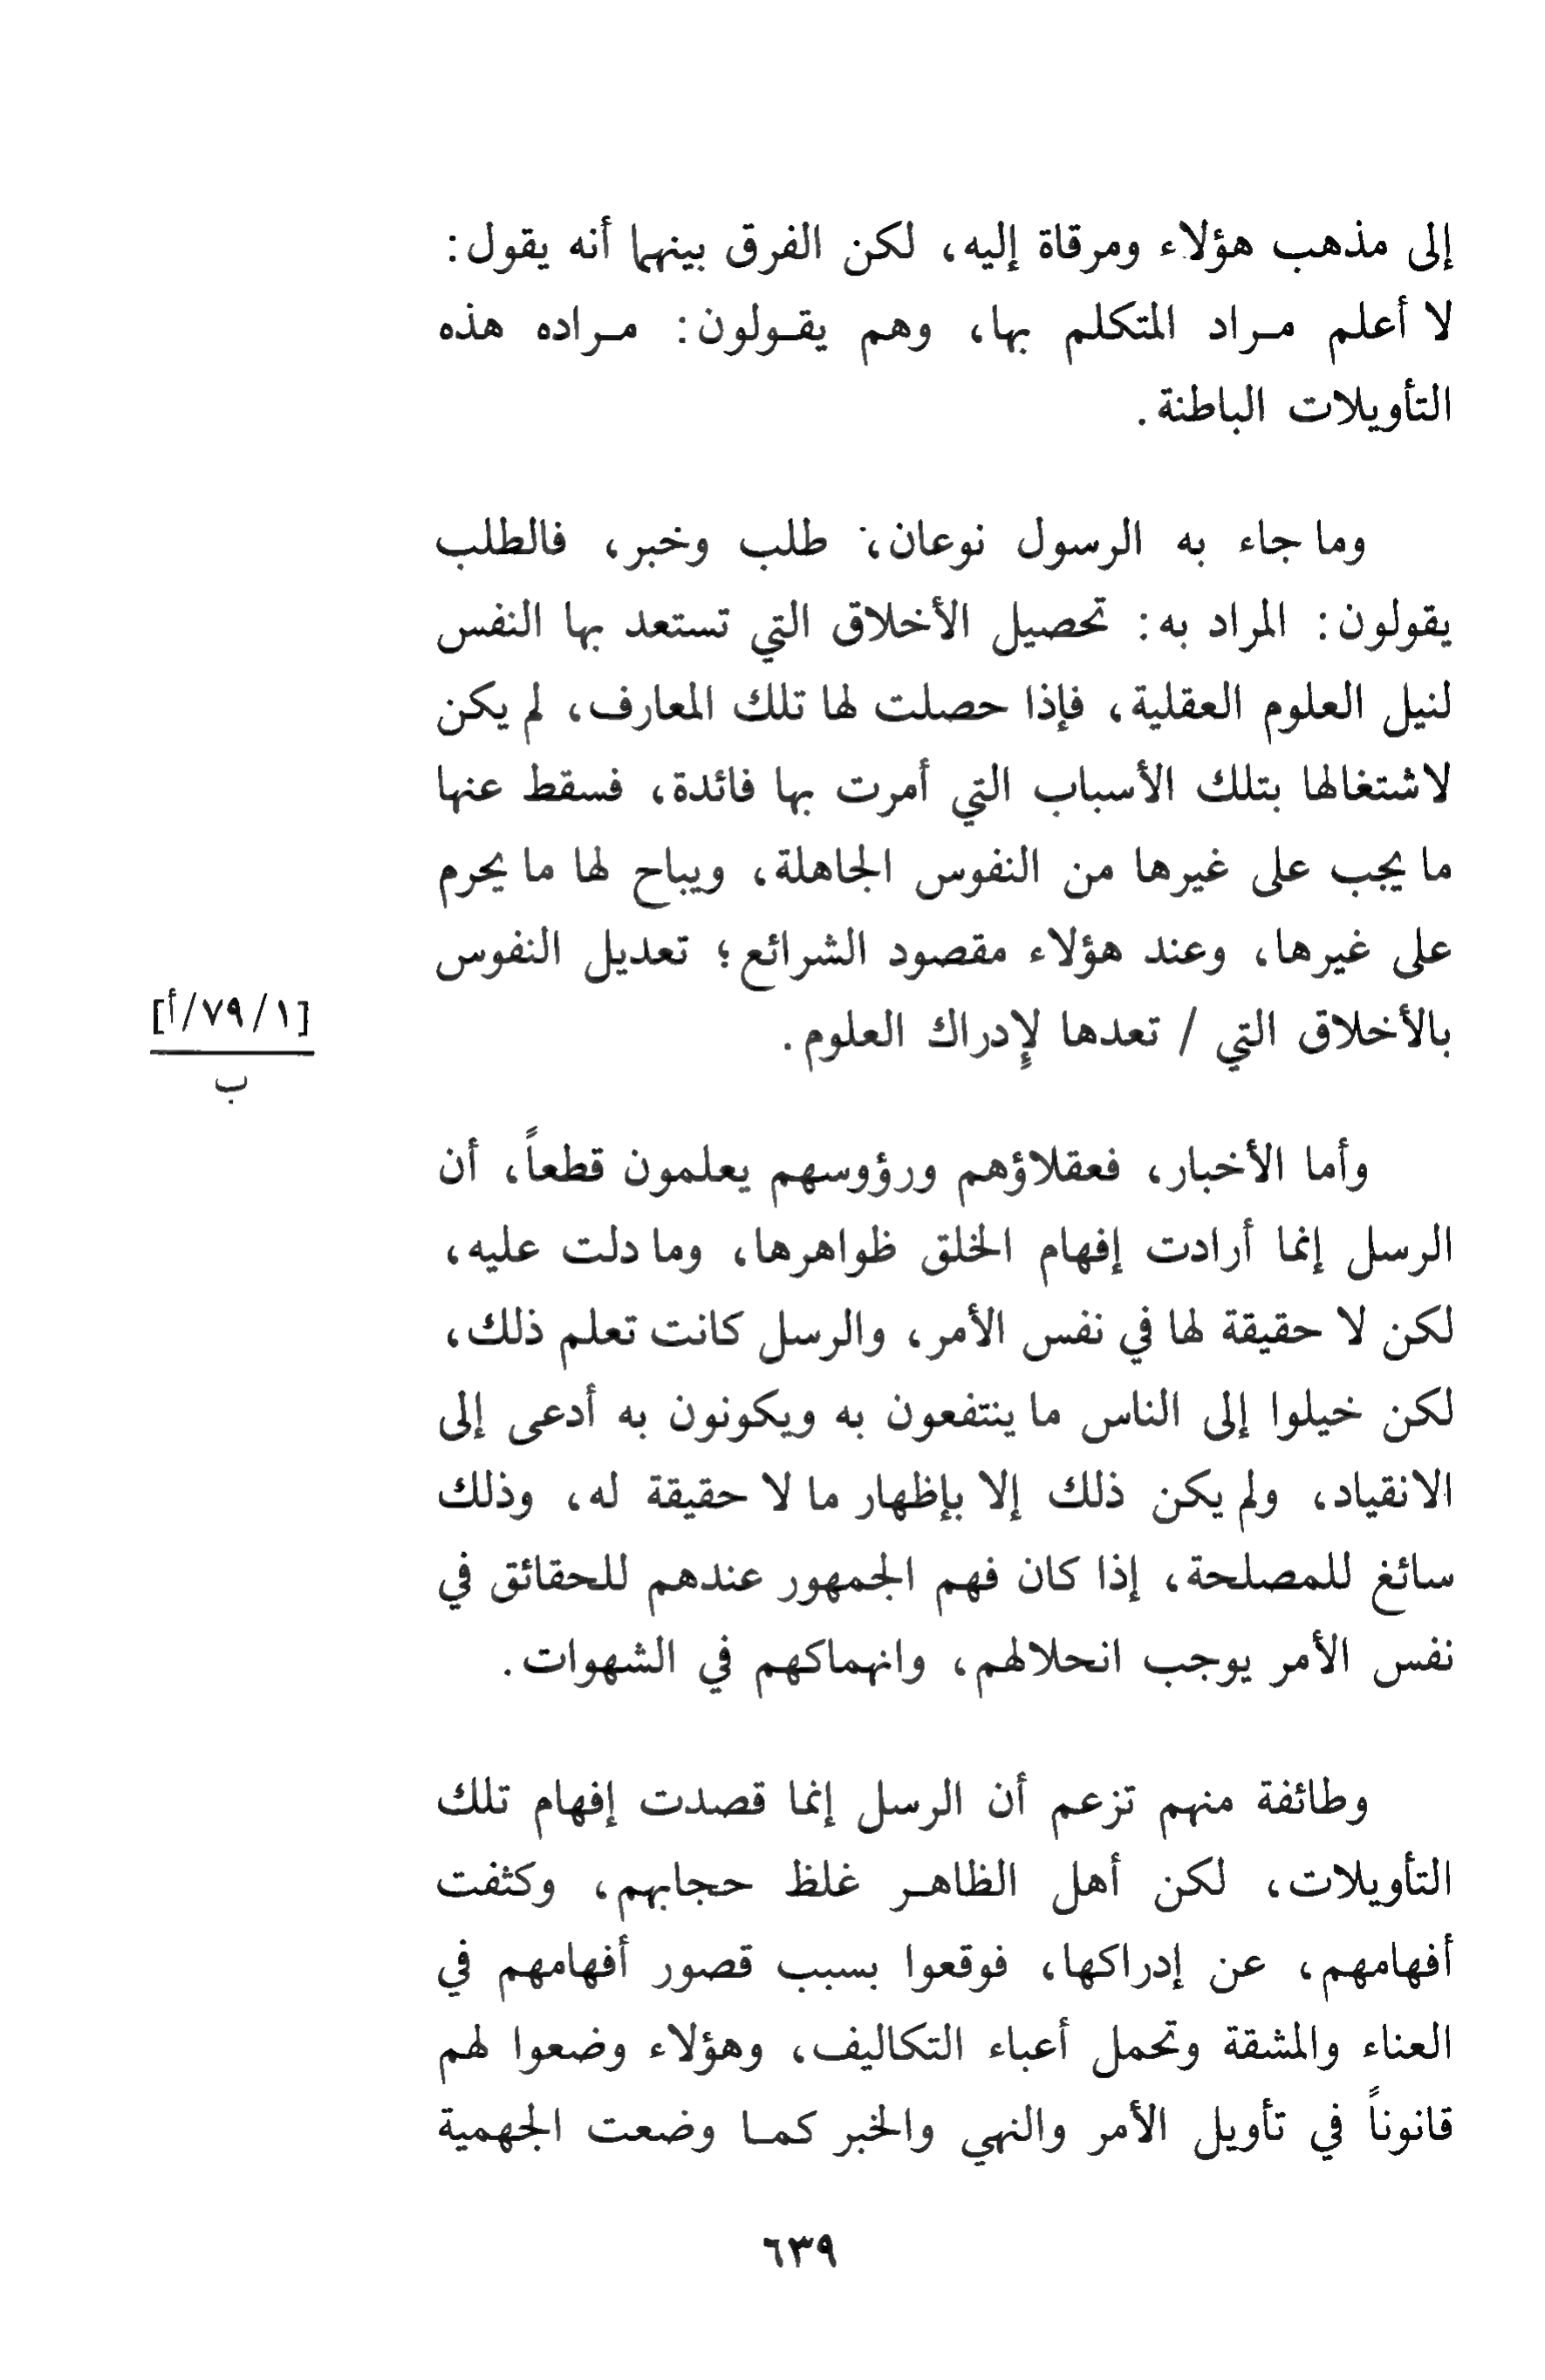 إلى مذهب هؤلاء ومرقاة إليه، لكن الفرق بينهما أنه يقول:
لا أعلم مراد المتكلم بها، وهم يقولون: مراده هذه
التأويلات الباطنة.
وما جاء به الرسول نوعان، طلب وخبر، فالطلب
يقولون: المراد به: تحصيل الأخلاق التي تستعد بها النفس
لنيل العلوم العقلية، فإذا حصلت لها تلك المعارف، لم يكن
لاشتغالها بتلك الأسباب التي أمرت بها فائدة، فسقط عنها
ما يجب على غيرها من النفوس الجاهلة، ويباح لها ما يحرم
على غيرها، وعند هؤلاء مقصود الشرائع؛ تعديل النفوس
بالأخلاق التي / تعدها لإدراك العلوم.
[١/٧٩/أ]
ب
وأما الأخبار، فعقلاؤهم ورؤوسهم يعلمون قطعاً، أن
الرسل إنما أرادت إفهام الخلق ظواهرها، وما دلت عليه،
لكن لا حقيقة لها في نفس الأمر، والرسل كانت تعلم ذلك،
لكن خيلوا إلى الناس ما ينتفعون به ويكونون به أدعى إلى
الانقياد، ولم يكن ذلك إلا بإظهار ما لا حقيقة له، وذلك
سائغ للمصلحة، إذا كان فهم الجمهور عندهم للحقائق في
نفس الأمر يوجب انحلالهم، وانهماكهم في الشهوات.
وطائفة منهم تزعم أن الرسل إنما قصدت إفهام تلك
التأويلات، لكن أهل الظاهر غلظ حجابهم، وكثفت
أفهامهم، عن إدراكها، فوقعوا بسبب قصور أفهامهم في
العناء والمشقة وتحمل أعباء التكاليف، وهؤلاء وضعوا لهم
قانوناً في تأويل الأمر والنهي والخبر كما وضعت الجهمية
٦٣٩